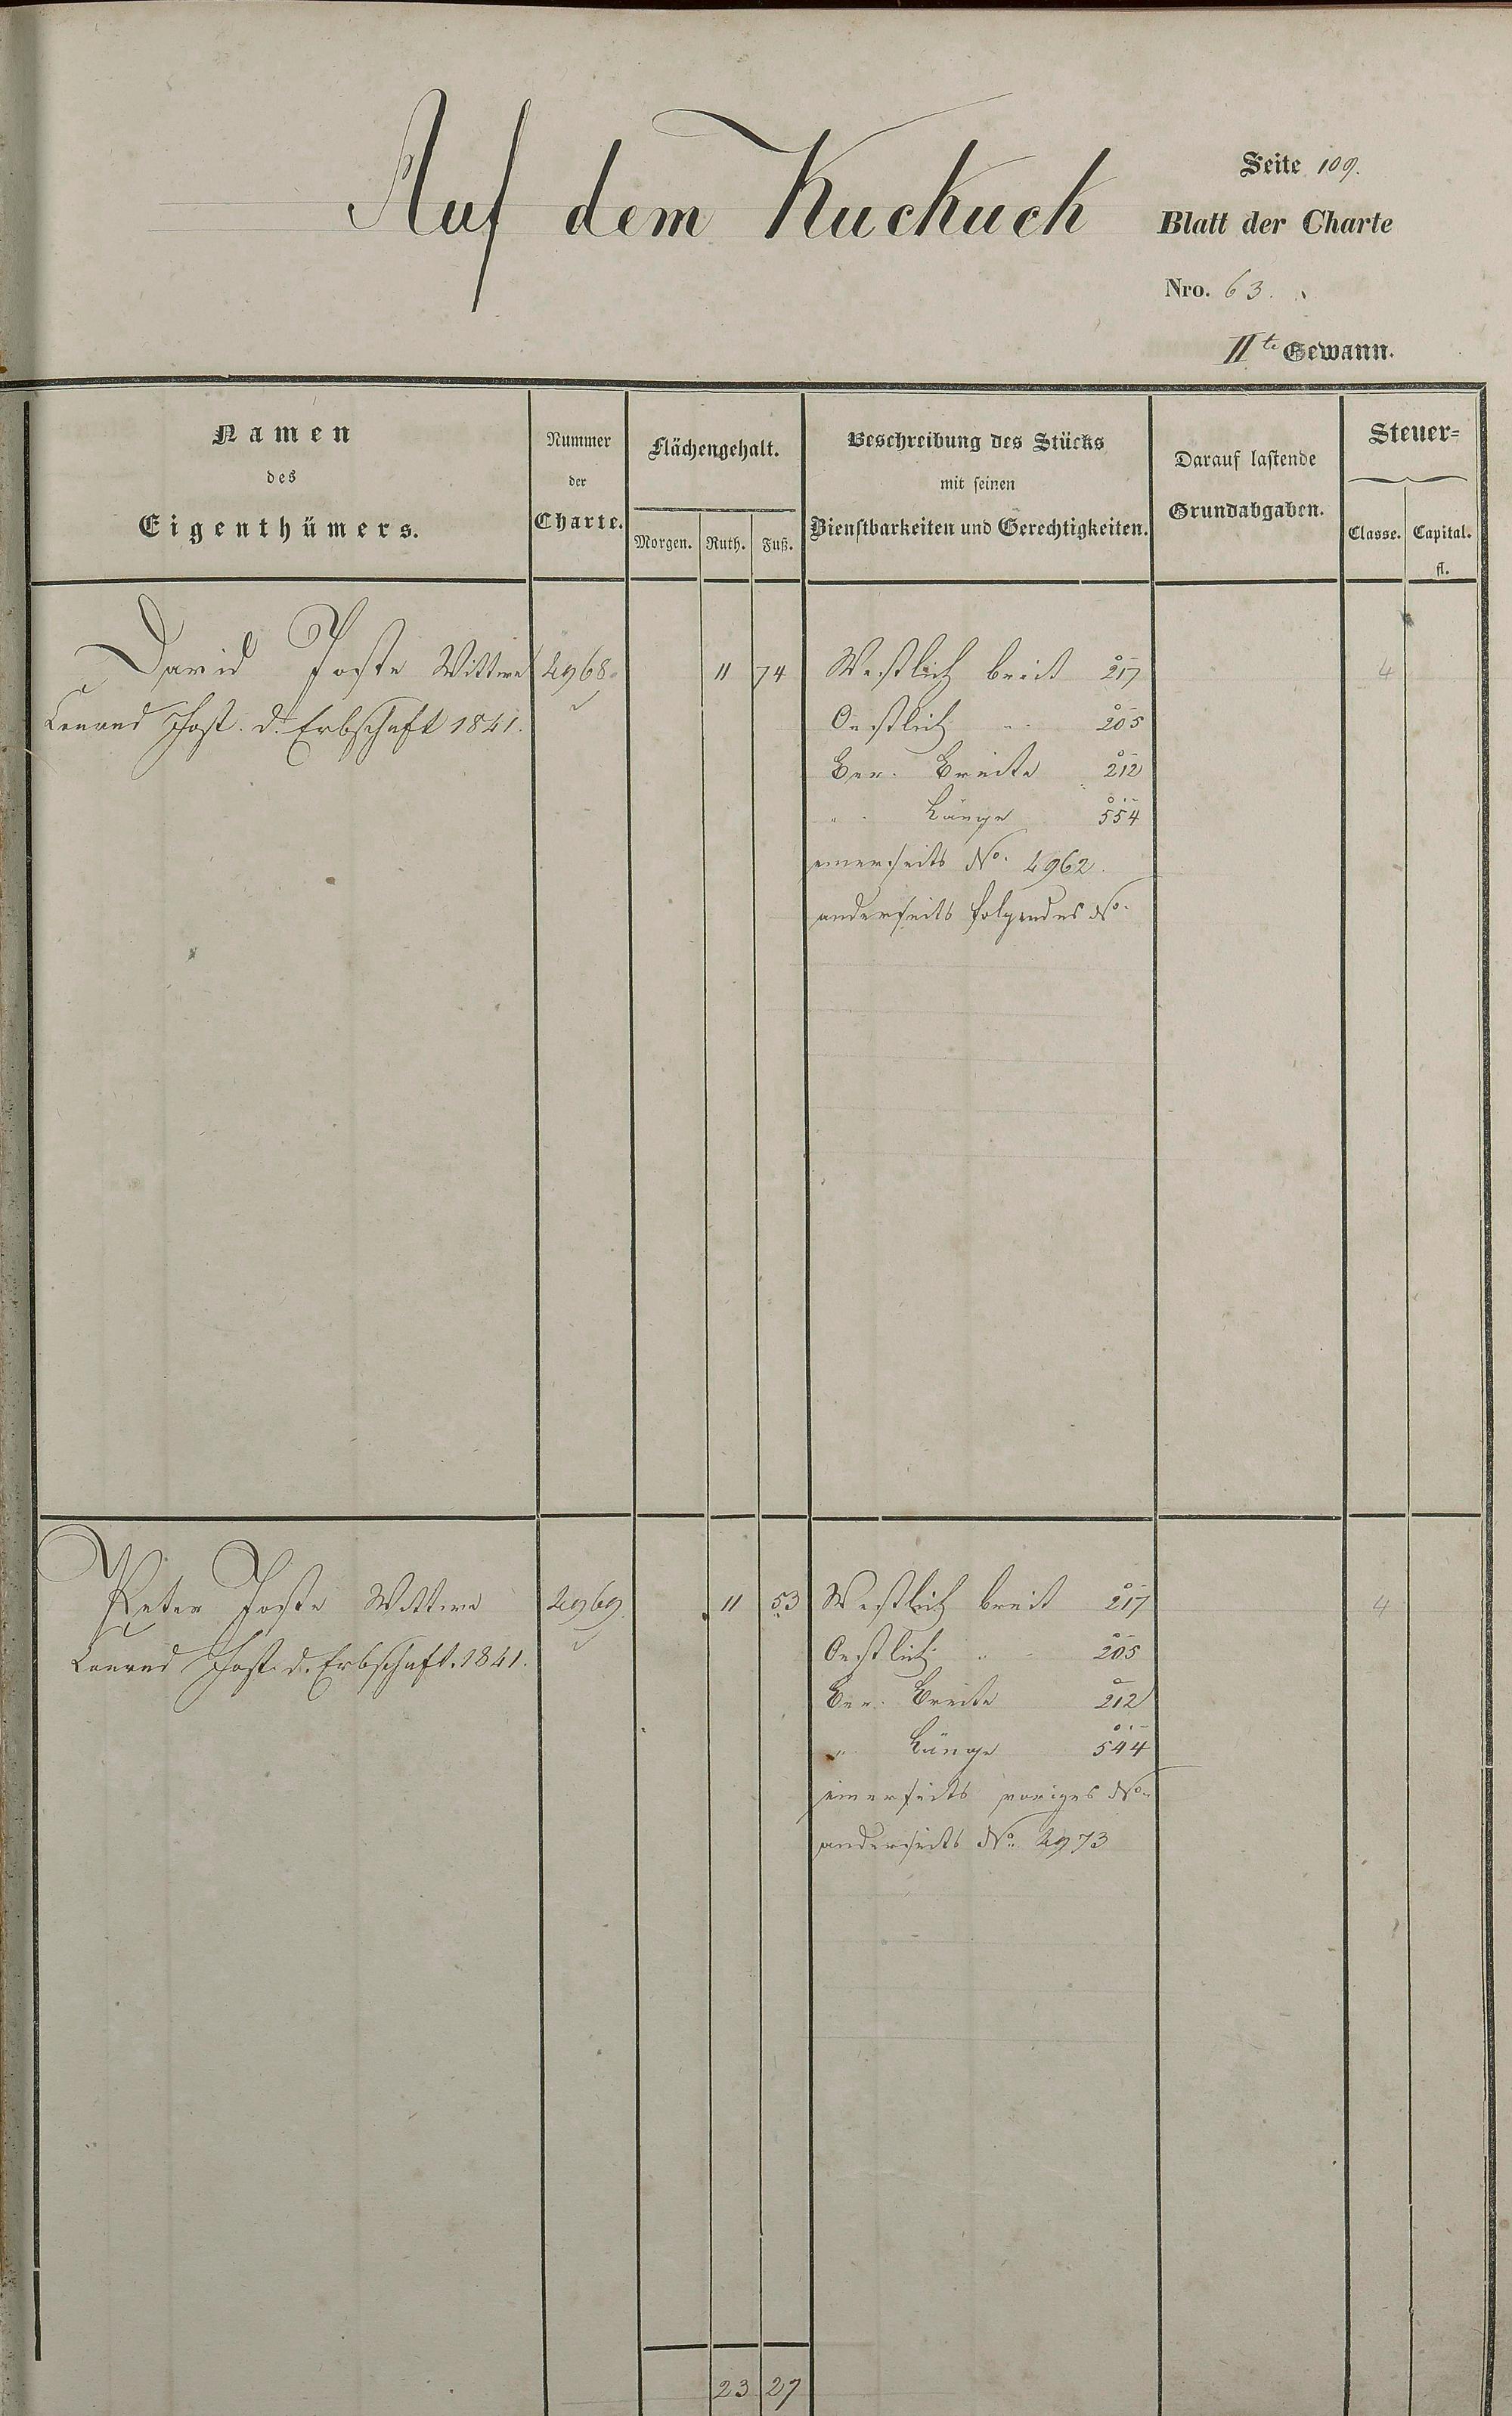 Auf dem Kuckuck
Seite 109.
Blatt der Charte
Nro. 63.
IIte Gewann.
Namen
des
Eigenthümers.
Nummer
der
Charte.
Flächengehalt.
Morgen. Ruth. Fuß.
Beschreibung des Stücks
mit seinen
Dienstbarkeiten und Gerechtigkeiten.
Darauf lastende
Grundabgaben.
Steuer=
Classe. Capital.
fl.
David Joste Wittwe 4968. 11 74 Westlich breit 217 4
Conrad Jost. d. Erbschaft 1841. Oestlich " 205
Ber. Breite 212
" Länge 554
einerseits No. 4962
anderseits folgendes No.
Peter Joste Wittwe 4969. 11 53 Westlich breit 217 4
Conrad Jost. d. Erbschaft. 1841. Oestlich " 205
Ber. Breite 212
" Länge 544
einerseits voriges No.
anderseits No. 4973
23 27